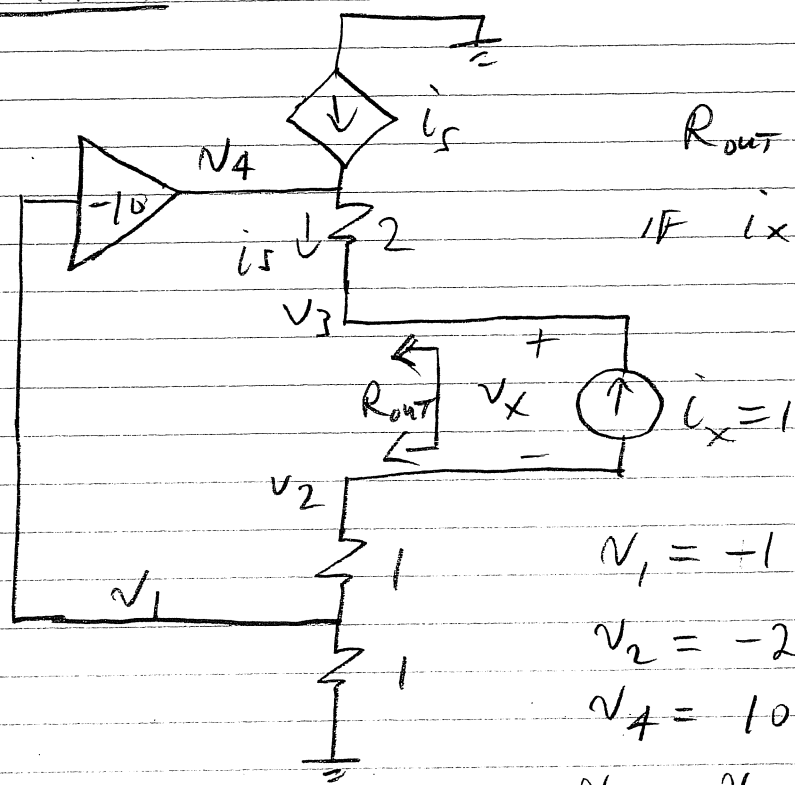 i_s
R_OUT
N_4
-10
i_s
2
IF i_x
V_3
+
R_OUT
V_x
i_x = 1
-
V_2
1
V_1 = -1
V_1
1
V_2 = -2
V_4 = 10